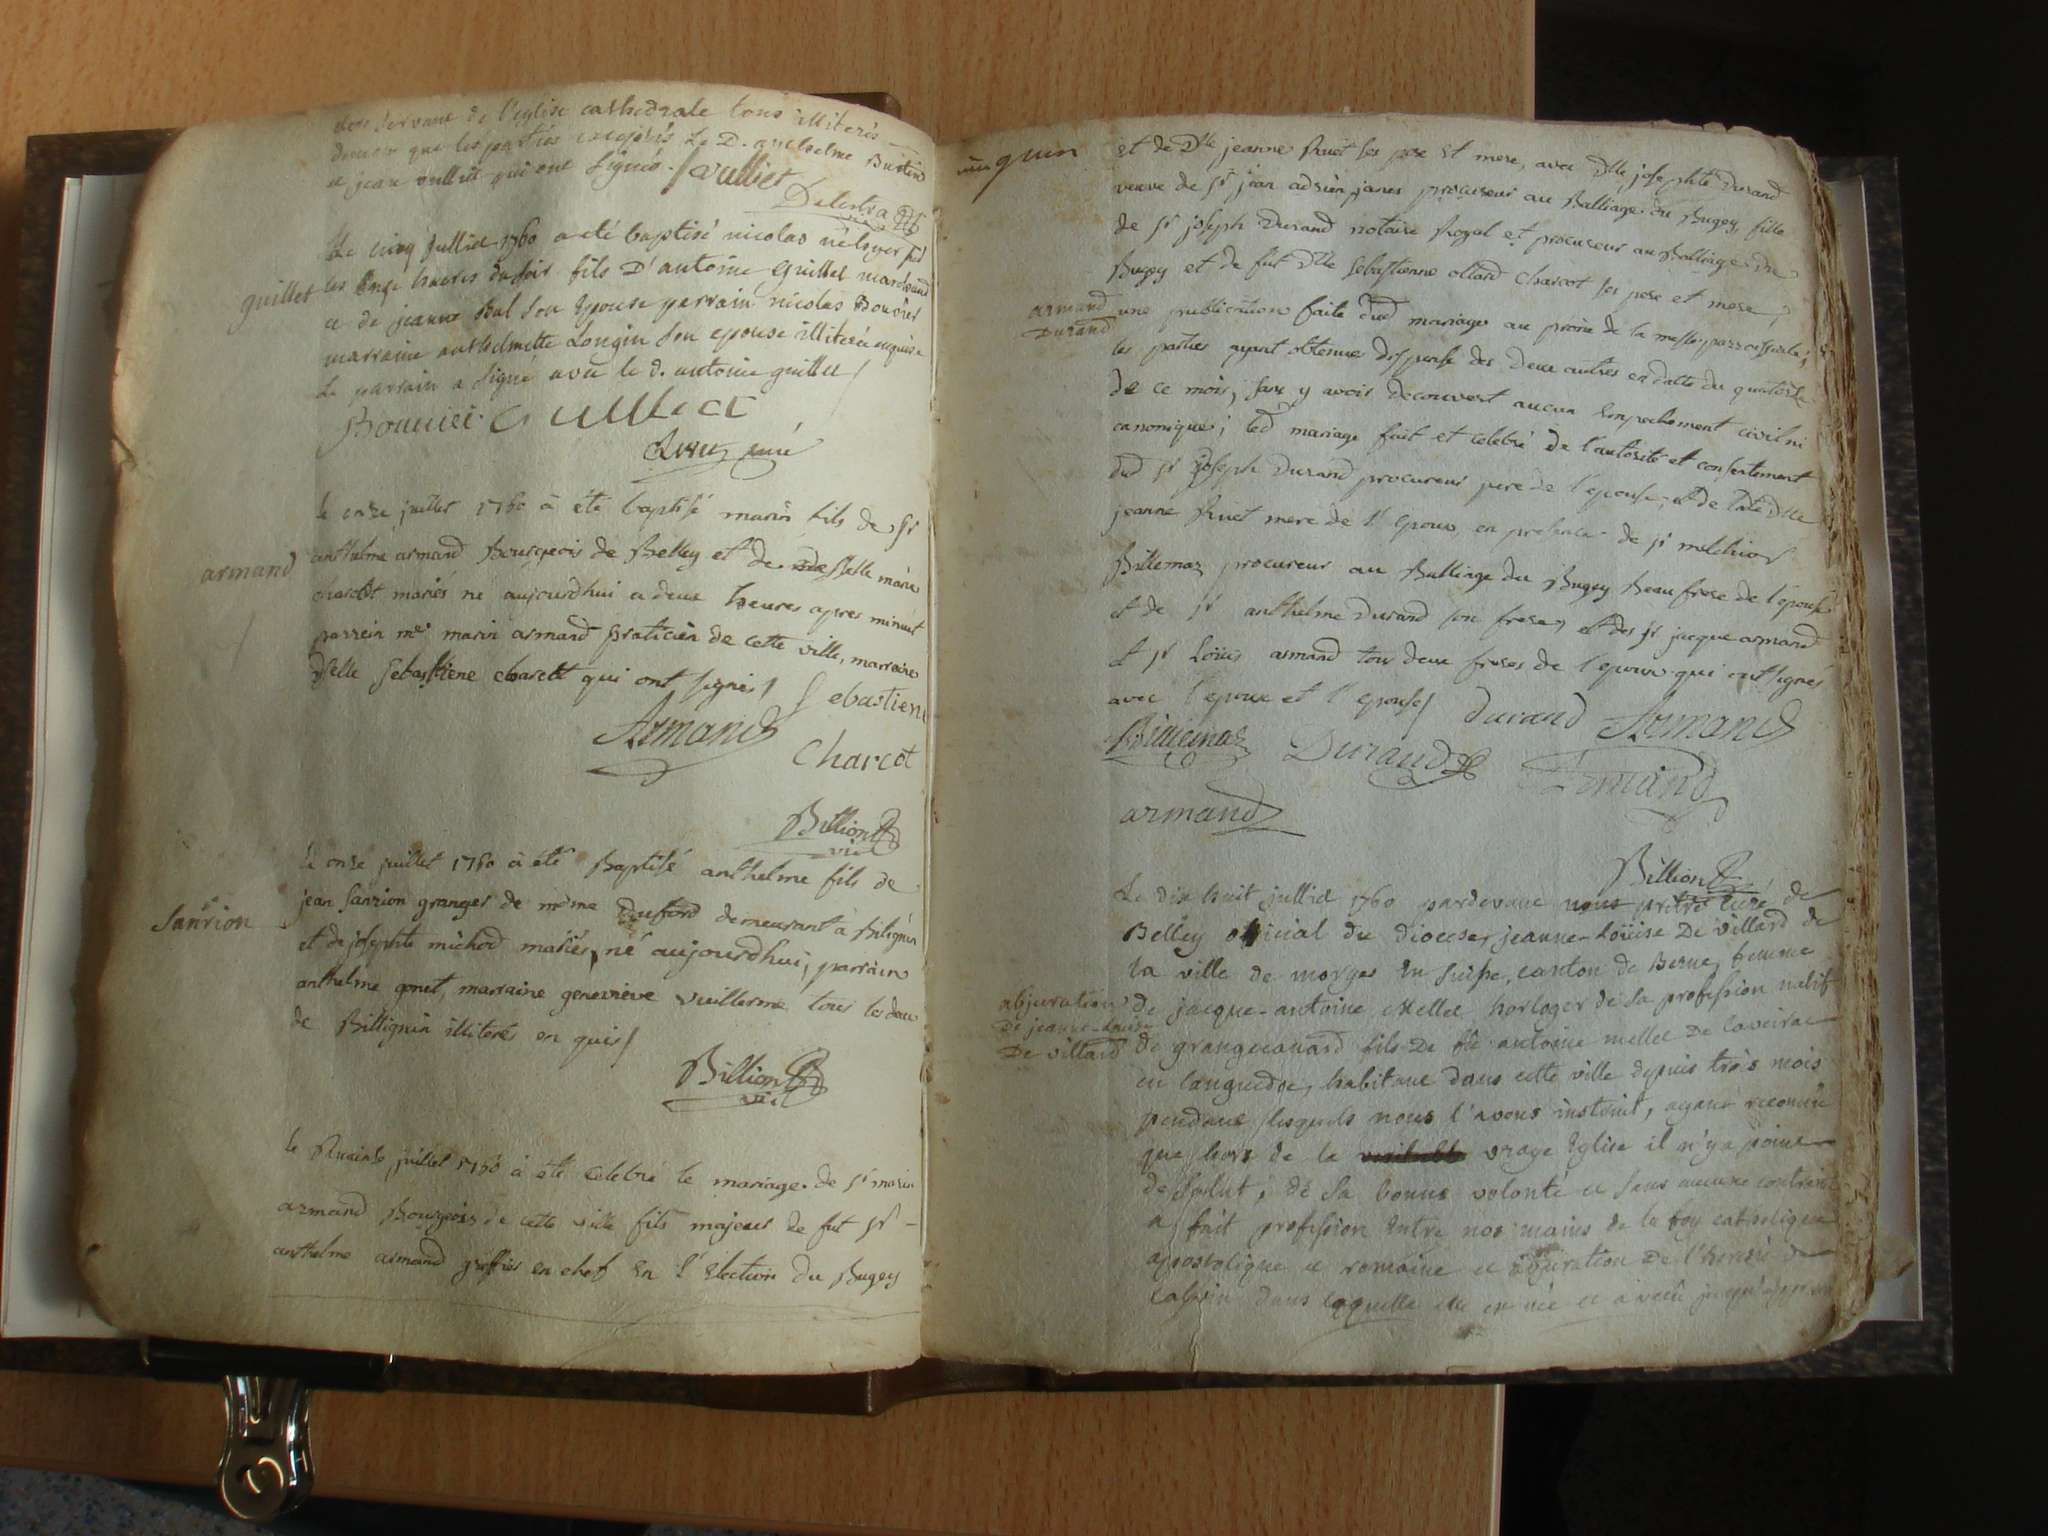 servant de l'eglise cathedrale tous illiterés
que les parties exceptés le D. anthelme
et jean vulliet qui ont signés. J vulliet
Delestra
vic
Le cinq Julliet 1760 a eté baptisé nicolas né hyer sur
guillet
les onze heures du soir fils D'antoine Guillet marchand
et de jeanne Bal son epouse parrain nicolas Bouvier
marraine anthelmette Longin son epouse illiterée enquise
Le parrain a signé avec le d. antoine guillet /
Bouvier Guilliet
curé
le onze juillet 1760 à été baptisé marin fils de sr
armand
anthelme armand Bourgeois de Belley et de delle marie
charcot mariés né aujourdhui a deux heures apres minuit
parrein me marin armand praticien de cette ville, marraine
delle Sebastiene charcot qui ont signés /
Sebastiene
Armand
Charcot
Billion
vic
le onze juillet 1760 à été Baptisé anthelme fils de
Sanrion
jean Sanrion granger de même Duford demeurant à Bilignin
et de josephte michod mariés, né aujourdhui, parrain
anthelme gonet, marraine genevieve vuillerme tous les deux
de Billignin illiteres en quis /
Billion
vic
le quinze juillet 1760 à été celebré le mariage de sr marin
armand Bourgeois de cette ville fils majeur de fut sr
anthelme armand greffier en chef en l'election du Bugey
et de Dlle jeanne Rivet ses pere et mere, avec Dlle josephte Durand
veuve de sr jean adrien janes procureur au Balliage du Bugey, fille
de sr joseph Durand notaire Royal et procureur au Balliage du
Bugey et de fut Dlle Sebastienne ollard Charcot ses pere et mere,
armand
Durand
une publication faite dud mariage au prône de la messe parroissiale,
les parties ayant obtenues dispense des deux autres en datte du quatorze
de ce mois, sans y avoir decouvert aucun empechement civil ni
canonique; led mariage fait et celebré de l'autorité et consentement
dud sr joseph Durand procureur pere de l'epouse, et de lade Dlle
jeanne Rivet mere de l'epoux, en presence de sr melchior
Billemaz procureur au Balliage du Bugey Beaufrere de l'epouse
et de sr anthelme Durand son frere, et des sr jacque armand
et sr Loüis armand tous deux freres de l'epoux qui ont signés
avec l'epoux et l'epouse /
durand Armand
Billiemaz Durand Armand
armand
Billion
Le dix huit julliet 1760 pardevant nous prètre curé de
Belley official du diocese, jeanne-Loüise De Villard de
la ville de morges en suisse, canton de Berne, femme
abjuration
De jeanne-Louise
De Villard
de jacque-antoine Mellet horloger de sa profession natif
de grangecanard fils De fû antoine mellet De laveirac
en languedoc, habitant dans cette ville depuis trois mois
pendant lesquels nous l'avons instruit, ayant reconnû
que hors de la vraye Eglise il n'y a point
de salut, de sa bonne volonté et sans aucune contrainte
a fait profession entre nos mains de la foy catholique
apostolique et romaine et abjuration de l'heresie de
calvin dans laquelle elle est née et a vecû jusqu'à present